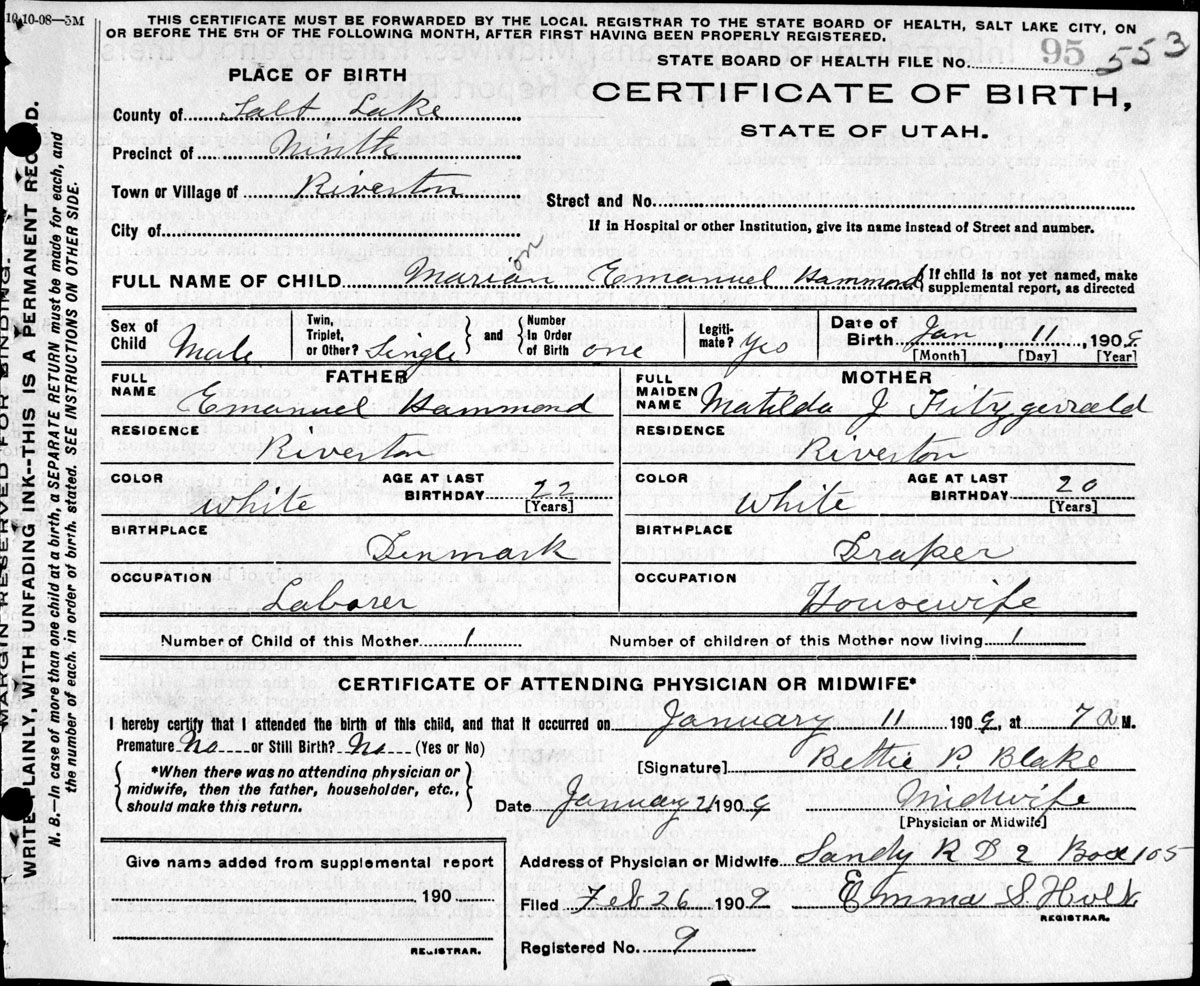 10, 10-08—5M
THIS CERTIFICATE MUST BE FORWARDED BY THE LOCAL REGISTRAR TO THE STATE BOARD OF HEALTH, SALT LAKE CITY, ON
OR BEFORE THE 5TH OF THE FOLLOWING MONTH, AFTER FIRST HAVING BEEN PROPERLY REGISTERED.
STATE BOARD OF HEALTH FILE No. 95 553
PLACE OF BIRTH
CERTIFICATE OF BIRTH,
STATE OF UTAH.
County of Salt Lake
Precinct of Ninth
Town or Village of Riverton
Street and No.
City of
If in Hospital or other Institution, give its name instead of Street and number.
on
FULL NAME OF CHILD Marian Emanuel Hammond { If child is not yet named, make
supplemental report, as directed
Sex of Child Male
Twin, Triplet, or Other? Single } and { Number In Order of Birth one
Legitimate? Yes
Date of Birth Jan 11, 190
[Month] [Day] [Year]
FATHER
FULL NAME Emanuel Hammond
RESIDENCE Riverton
COLOR White AGE AT LAST BIRTHDAY 22 [Years]
BIRTHPLACE Denmark
OCCUPATION Laborer
MOTHER
FULL MAIDEN NAME Matilda J Fitzgerrald
RESIDENCE Riverton
COLOR White AGE AT LAST BIRTHDAY 20 [Years]
BIRTHPLACE Draper
OCCUPATION Housewife
Number of Child of this Mother 1 Number of children of this Mother now living 1
CERTIFICATE OF ATTENDING PHYSICIAN OR MIDWIFE*
I hereby certify that I attended the birth of this child, and that it occurred on January 11 1909, at 7 a M.
Premature No or Still Birth? No (Yes or No)
{ *When there was no attending physician or
midwife, then the father, householder, etc.,
should make this return. }
[Signature] Bettie P. Blake
Date January 21 1909 Midwife
[Physician or Midwife]
Give name added from supplemental report
190
REGISTRAR.
Address of Physician or Midwife Sandy R D 2 Box 105
Filed Feb 26 1909 Emma S. Holt
REGISTRAR.
Registered No. 9
MARGIN RESERVED FOR BINDING.
WRITE PLAINLY, WITH UNFADING INK--THIS IS A PERMANENT RECORD.
N. B.—In case of more than one child at a birth, a SEPARATE RETURN must be made for each, and
the number of each, in order of birth, stated. SEE INSTRUCTIONS ON OTHER SIDE.